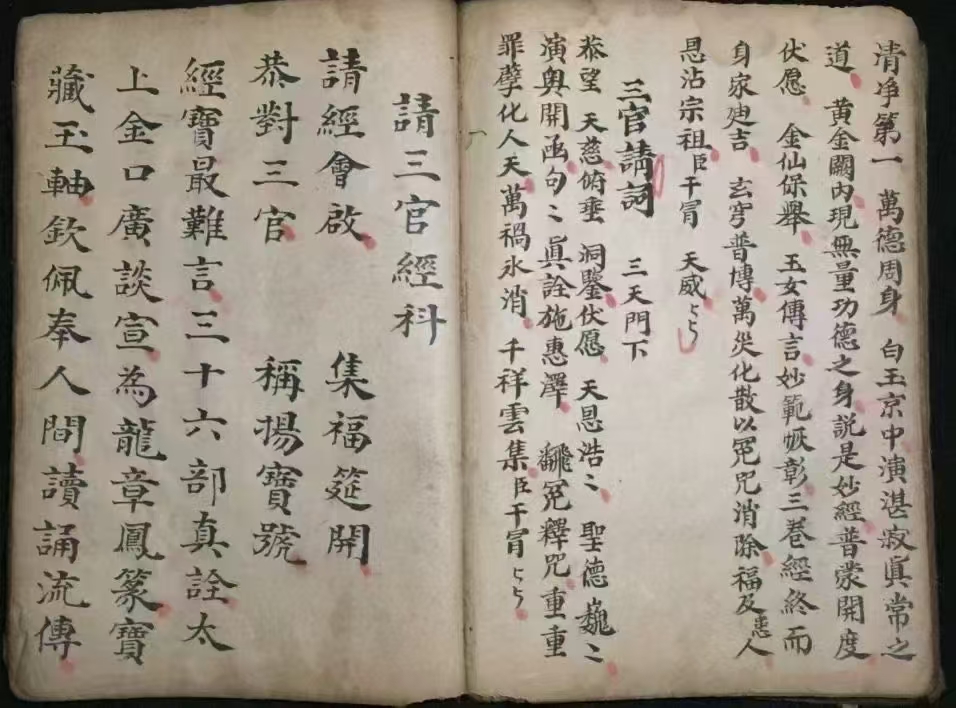 清净第一 萬德周身 白玉京中演湛寂眞常之
道 黄金闕內現無量功德之身說是妙經普蒙開度
伏愿 金仙保舉 玉女傳言妙範恢彰三卷經終而
身家迪吉 玄穹普博萬災化散以冤咒消除福及悳人
恩沾宗祖臣干冒 天威
三官請詞 三天門下
恭望 天慈俯垂 洞鑒伏愿 天恩浩之 聖德巍之
演奥開函句之眞詮施惠澤 飜冤釋咒重重
罪孽化人天萬禍氷消 千祥雲集臣干冒
請三官經科
請經會啟 集福筵開
恭對三官 稱揚寶號
經寶最難言三十六部真詮太
上金口廣談宣為龍章鳳篆寶
藏玉軸欽佩奉人間讀誦流傳